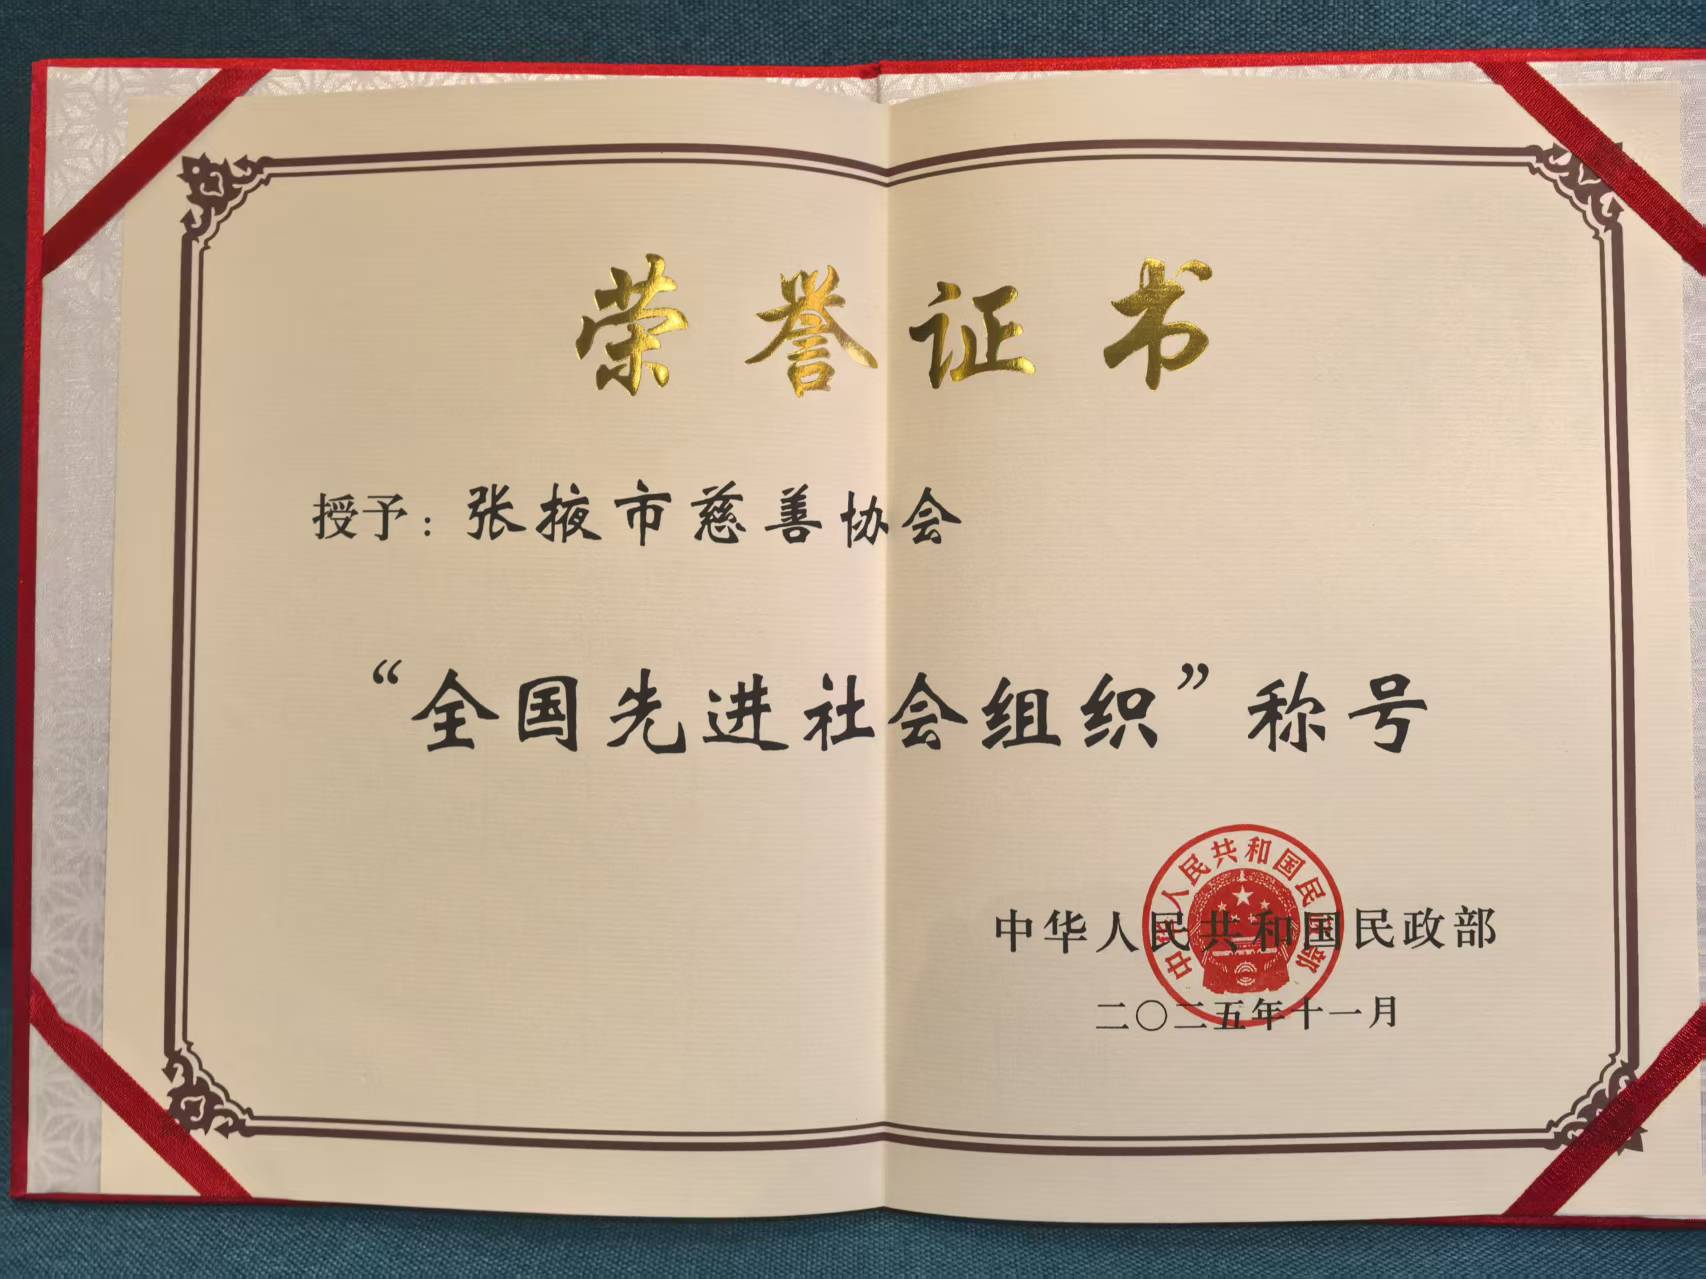 荣誉证书
授予：张掖市慈善协会
“全国先进社会组织”称号
中华人民共和国民政部
中华人民共和国民政部
二〇二五年十一月